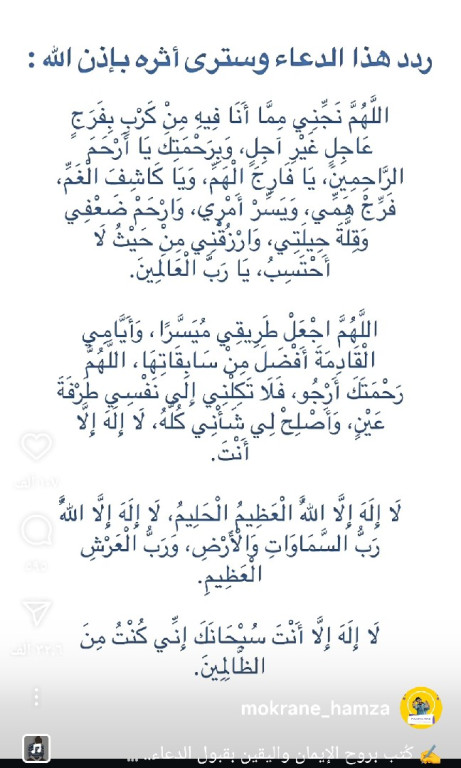 ردد هذا الدعاء وسترى أثره بإذن الله :
اللَّهُمَّ نَجِّنِي مِمَّا أَنَا فِيهِ مِنْ كَرْبٍ بِفَرَجٍ
عَاجِلٍ غَيْرِ آجِلٍ، وَبِرَحْمَتِكَ يَا أَرْحَمَ
الرَّاحِمِينَ، يَا فَارِجَ الْهَمِّ، وَيَا كَاشِفَ الْغَمِّ،
فَرِّجْ هَمِّي، وَيَسِّرْ أَمْرِي، وَارْحَمْ ضَعْفِي
وَقِلَّةَ حِيلَتِي، وَارْزُقْنِي مِنْ حَيْثُ لَا
أَحْتَسِبُ، يَا رَبَّ الْعَالَمِينَ.
اللَّهُمَّ اجْعَلْ طَرِيقِي مُيَسَّرًا، وَأَيَّامِي
الْقَادِمَةَ أَفْضَلَ مِنْ سَابِقَاتِهَا، اللَّهُمَّ
رَحْمَتَكَ أَرْجُو، فَلَا تَكِلْنِي إِلَى نَفْسِي طَرْفَةَ
عَيْنٍ، وَأَصْلِحْ لِي شَأْنِي كُلَّهُ، لَا إِلَهَ إِلَّا
أَنْتَ.
لَا إِلَهَ إِلَّا اللهُ الْعَظِيمُ الْحَلِيمُ، لَا إِلَهَ إِلَّا اللهُ
رَبُّ السَّمَاوَاتِ وَالْأَرْضِ، وَرَبُّ الْعَرْشِ
الْعَظِيمِ.
لَا إِلَهَ إِلَّا أَنْتَ سُبْحَانَكَ إِنِّي كُنْتُ مِنَ
الظَّالِمِينَ.
mokrane_hamza
✍️ كُتب بروح الإيمان واليقين بقبول الدعاء.. ...